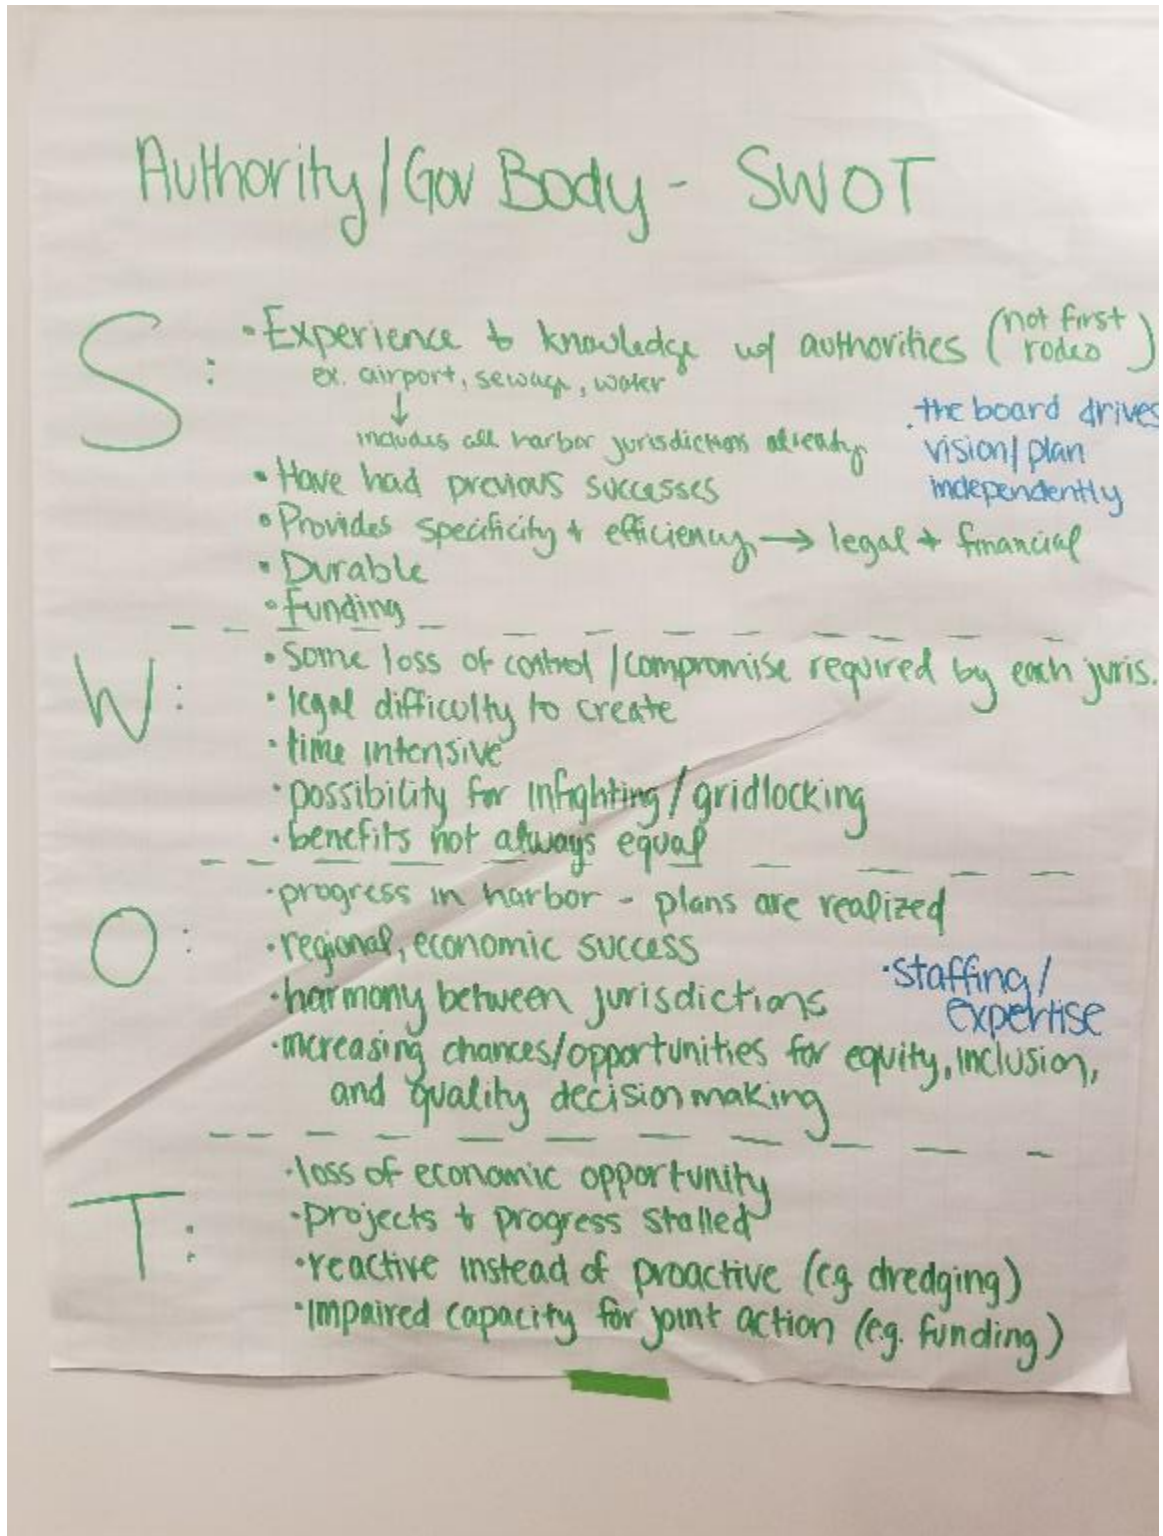 Authority/Gov Body - SWOT
S:
• Experience & knowledge w/ authorities (not first rodeo)
ex. airport, sewage, water
↓
includes all harbor jurisdictions already
• the board drives
vision/plan
independently
• Have had previous successes
• Provides specificity + efficiency → legal + financial
• Durable
• Funding
W:
• Some loss of control/compromise required by each juris.
• legal difficulty to create
• time intensive
• possibility for infighting/gridlocking
• benefits not always equal
O:
• progress in harbor - plans are realized
• regional, economic success
• harmony between jurisdictions
• staffing/
expertise
• increasing chances/opportunities for equity, inclusion,
and quality decision making
T:
• loss of economic opportunity
• projects & progress stalled
• reactive instead of proactive (eg dredging)
• Impaired capacity for joint action (e.g. funding)